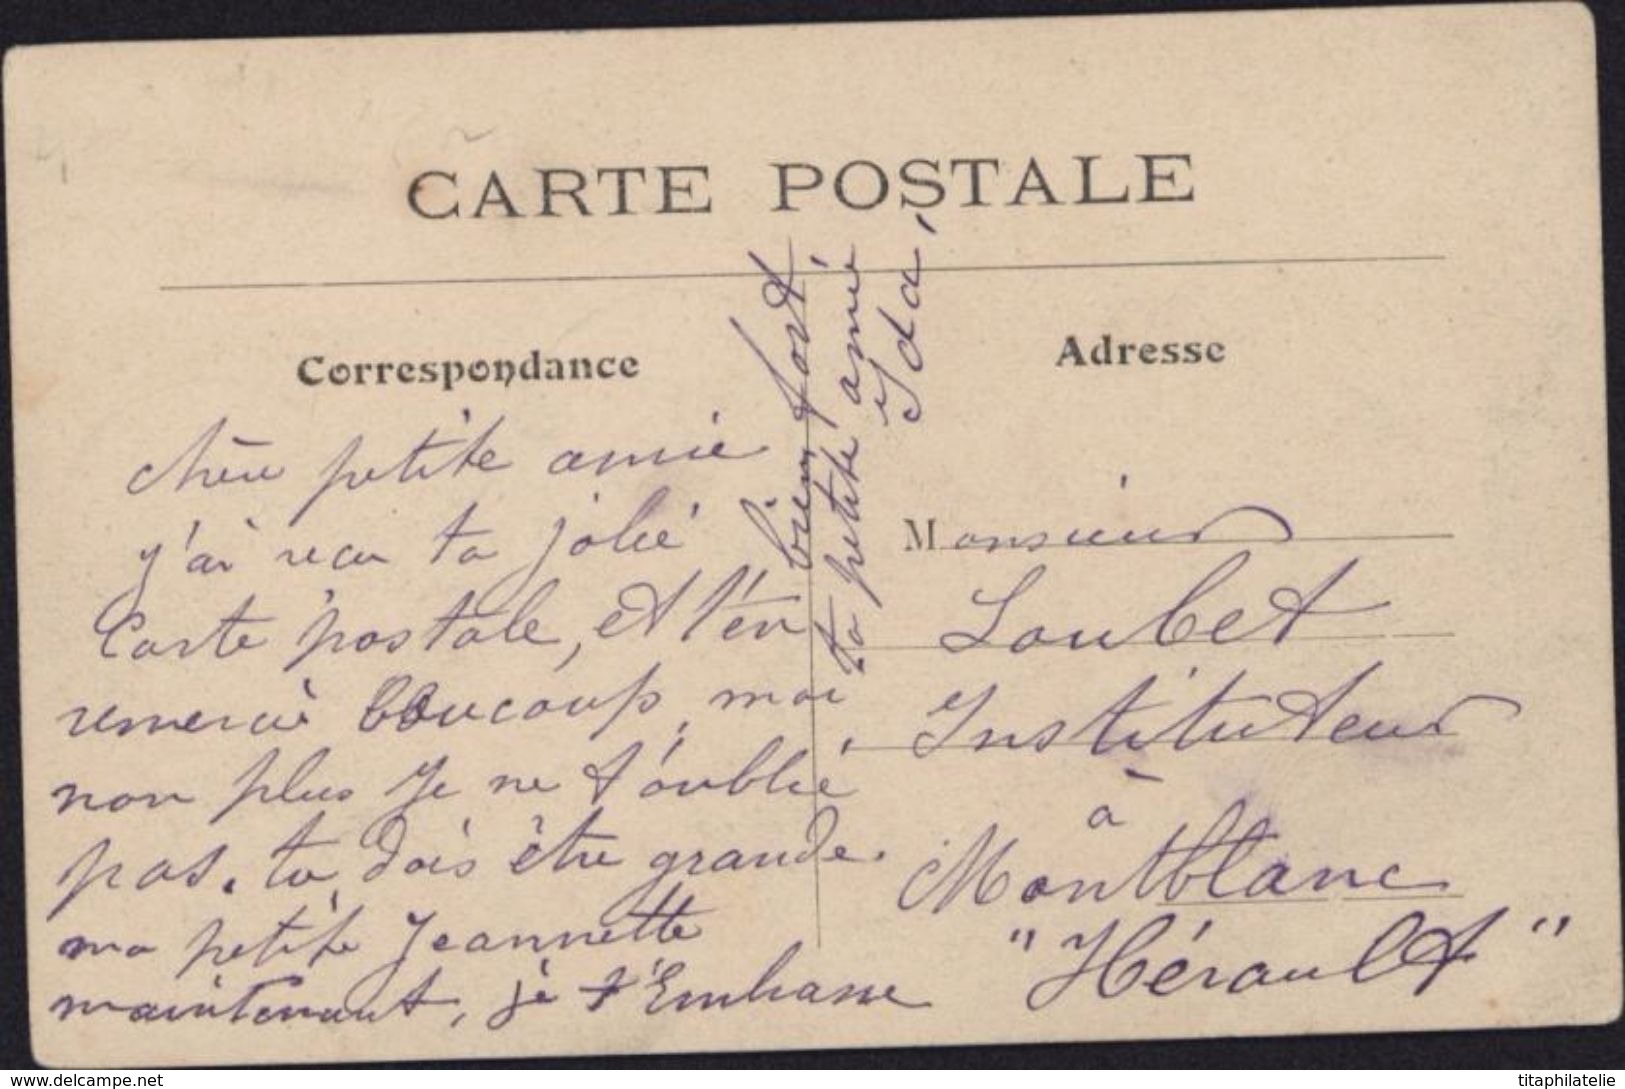 CARTE POSTALE
Correspondance
Adresse
Chère petite amie
j'ai reçu ta jolié
Carte postale, et t'en
remercie beaucoup, moi
non plus je ne t'oublié
pas. tu dois être grande
ma petite Jeannette
maintenant, je t'Embrasse
bien fort
ta petite amié
Ida,
Monsieur
Loubet
Instituteur
à
Montblanc
"Hérault"
delcampe.net
titaphilatelie